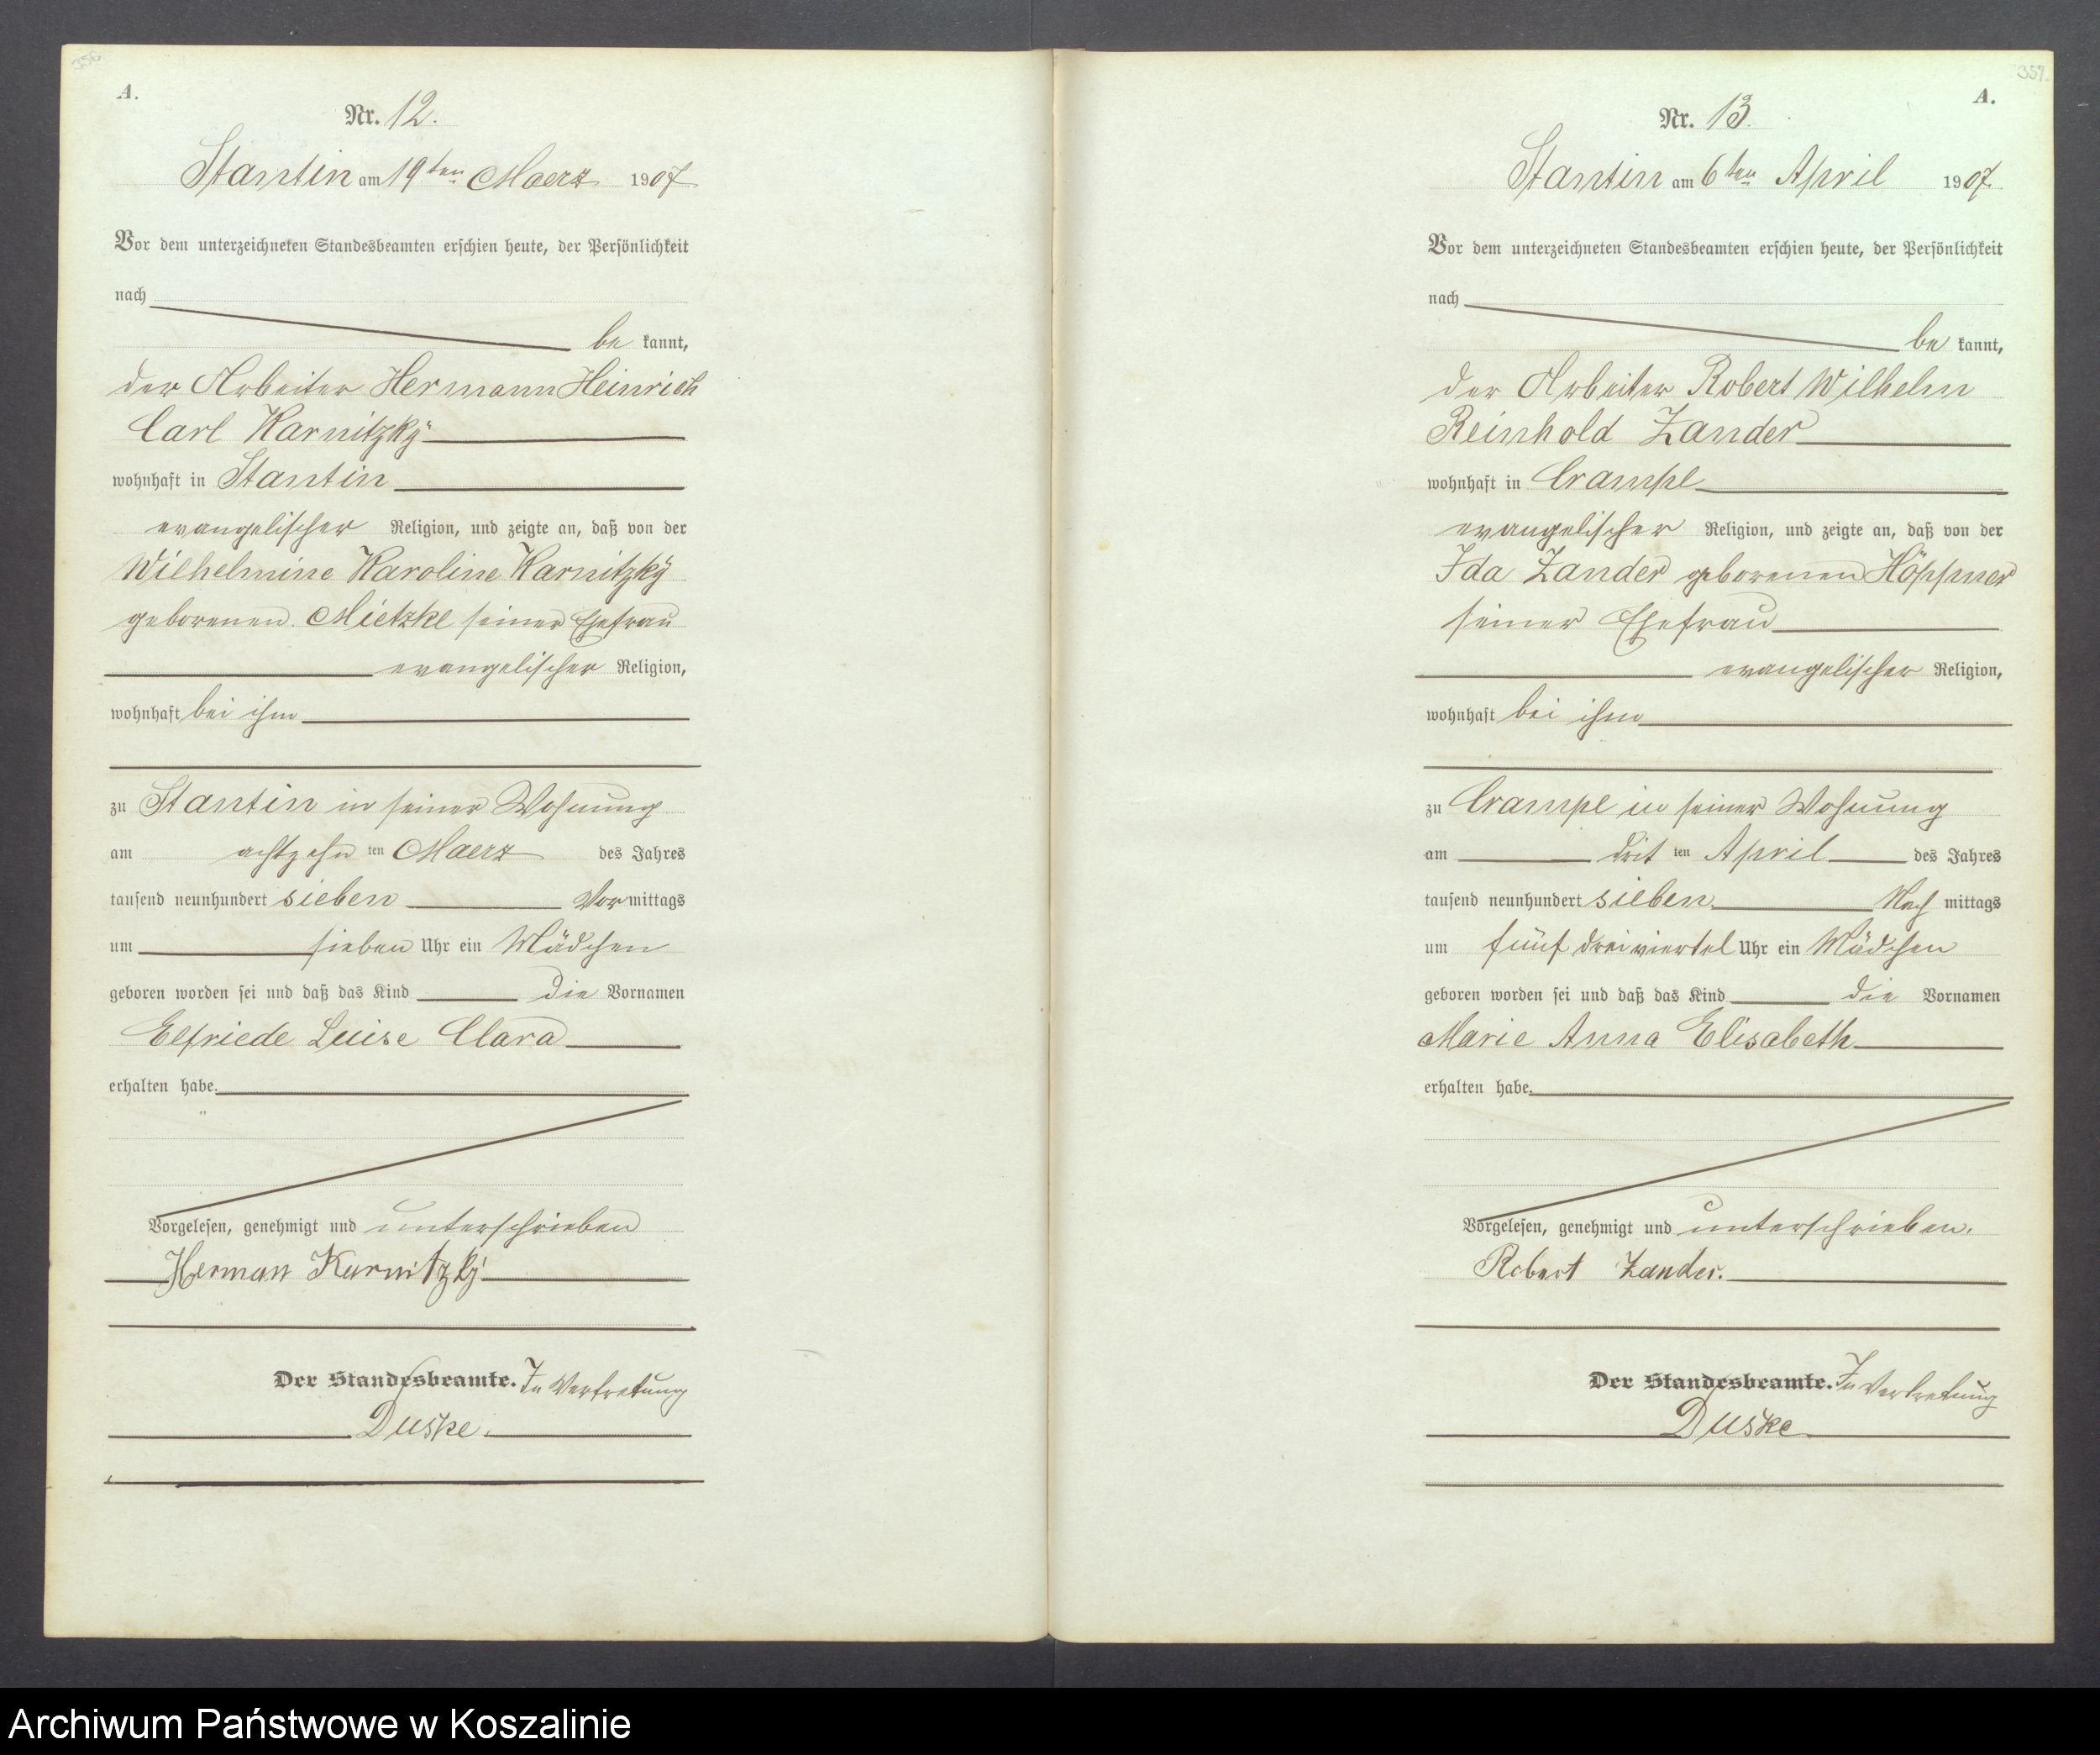 356
A.
Nr. 12.
Stantin am 19ten Maerz 1907
Vor dem unterzeichneten Standesbeamten erschien heute, der Persönlichkeit
nach
be kannt,
der Arbeiter Hermann Heinrich
Carl Karnitzky
wohnhaft in Stantin
evangelischer Religion, und zeigte an, daß von der
Wilhelmine Karoline Karnitzky
geborenen Mietzke seiner Ehefrau
evangelischer Religion,
wohnhaft bei ihm
zu Stantin in seiner Wohnung
am achtzehn ten Maerz des Jahres
tausend neunhundert sieben Vormittags
um sieben Uhr ein Mädchen
geboren worden sei und daß das Kind die Vornamen
Elfriede Luise Clara
erhalten habe.
Vorgelesen, genehmigt und unterschrieben
Herman Karnitzky
Der Standesbeamte. In Vertretung
Duske.
357.
A.
Nr. 13.
Stantin am 6ten April 1907.
Vor dem unterzeichneten Standesbeamten erschien heute, der Persönlichkeit
nach
be kannt,
der Arbeiter Robert Wilhelm
Reinhold Zander
wohnhaft in Crampe
evangelischer Religion, und zeigte an, daß von der
Ida Zander geborenen Höppner
seiner Ehefrau
evangelischer Religion,
wohnhaft bei ihm
zu Crampe in seiner Wohnung
am drit ten April des Jahres
tausend neunhundert sieben Nach mittags
um fünf dreiviertel Uhr ein Mädchen
geboren worden sei und daß das Kind die Vornamen
Marie Anna Elisabeth
erhalten habe.
Vorgelesen, genehmigt und unterschrieben.
Robert Zander.
Der Standesbeamte. In Vertretung
Duske
Archiwum Państwowe w Koszalinie